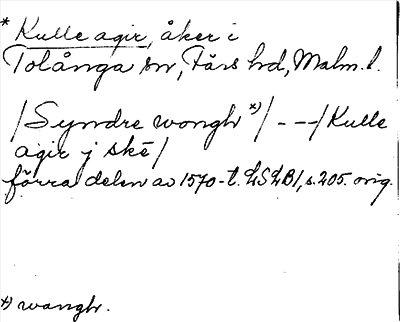 * Kulle agir, åker i
Tolånga sn, Färs hd, Malm. l.
/Syndre wongh *)/ - - -/Kulle
agir j skē/
förra delen av 1570-t. LSLB1, s. 205. orig.
*) wangh.